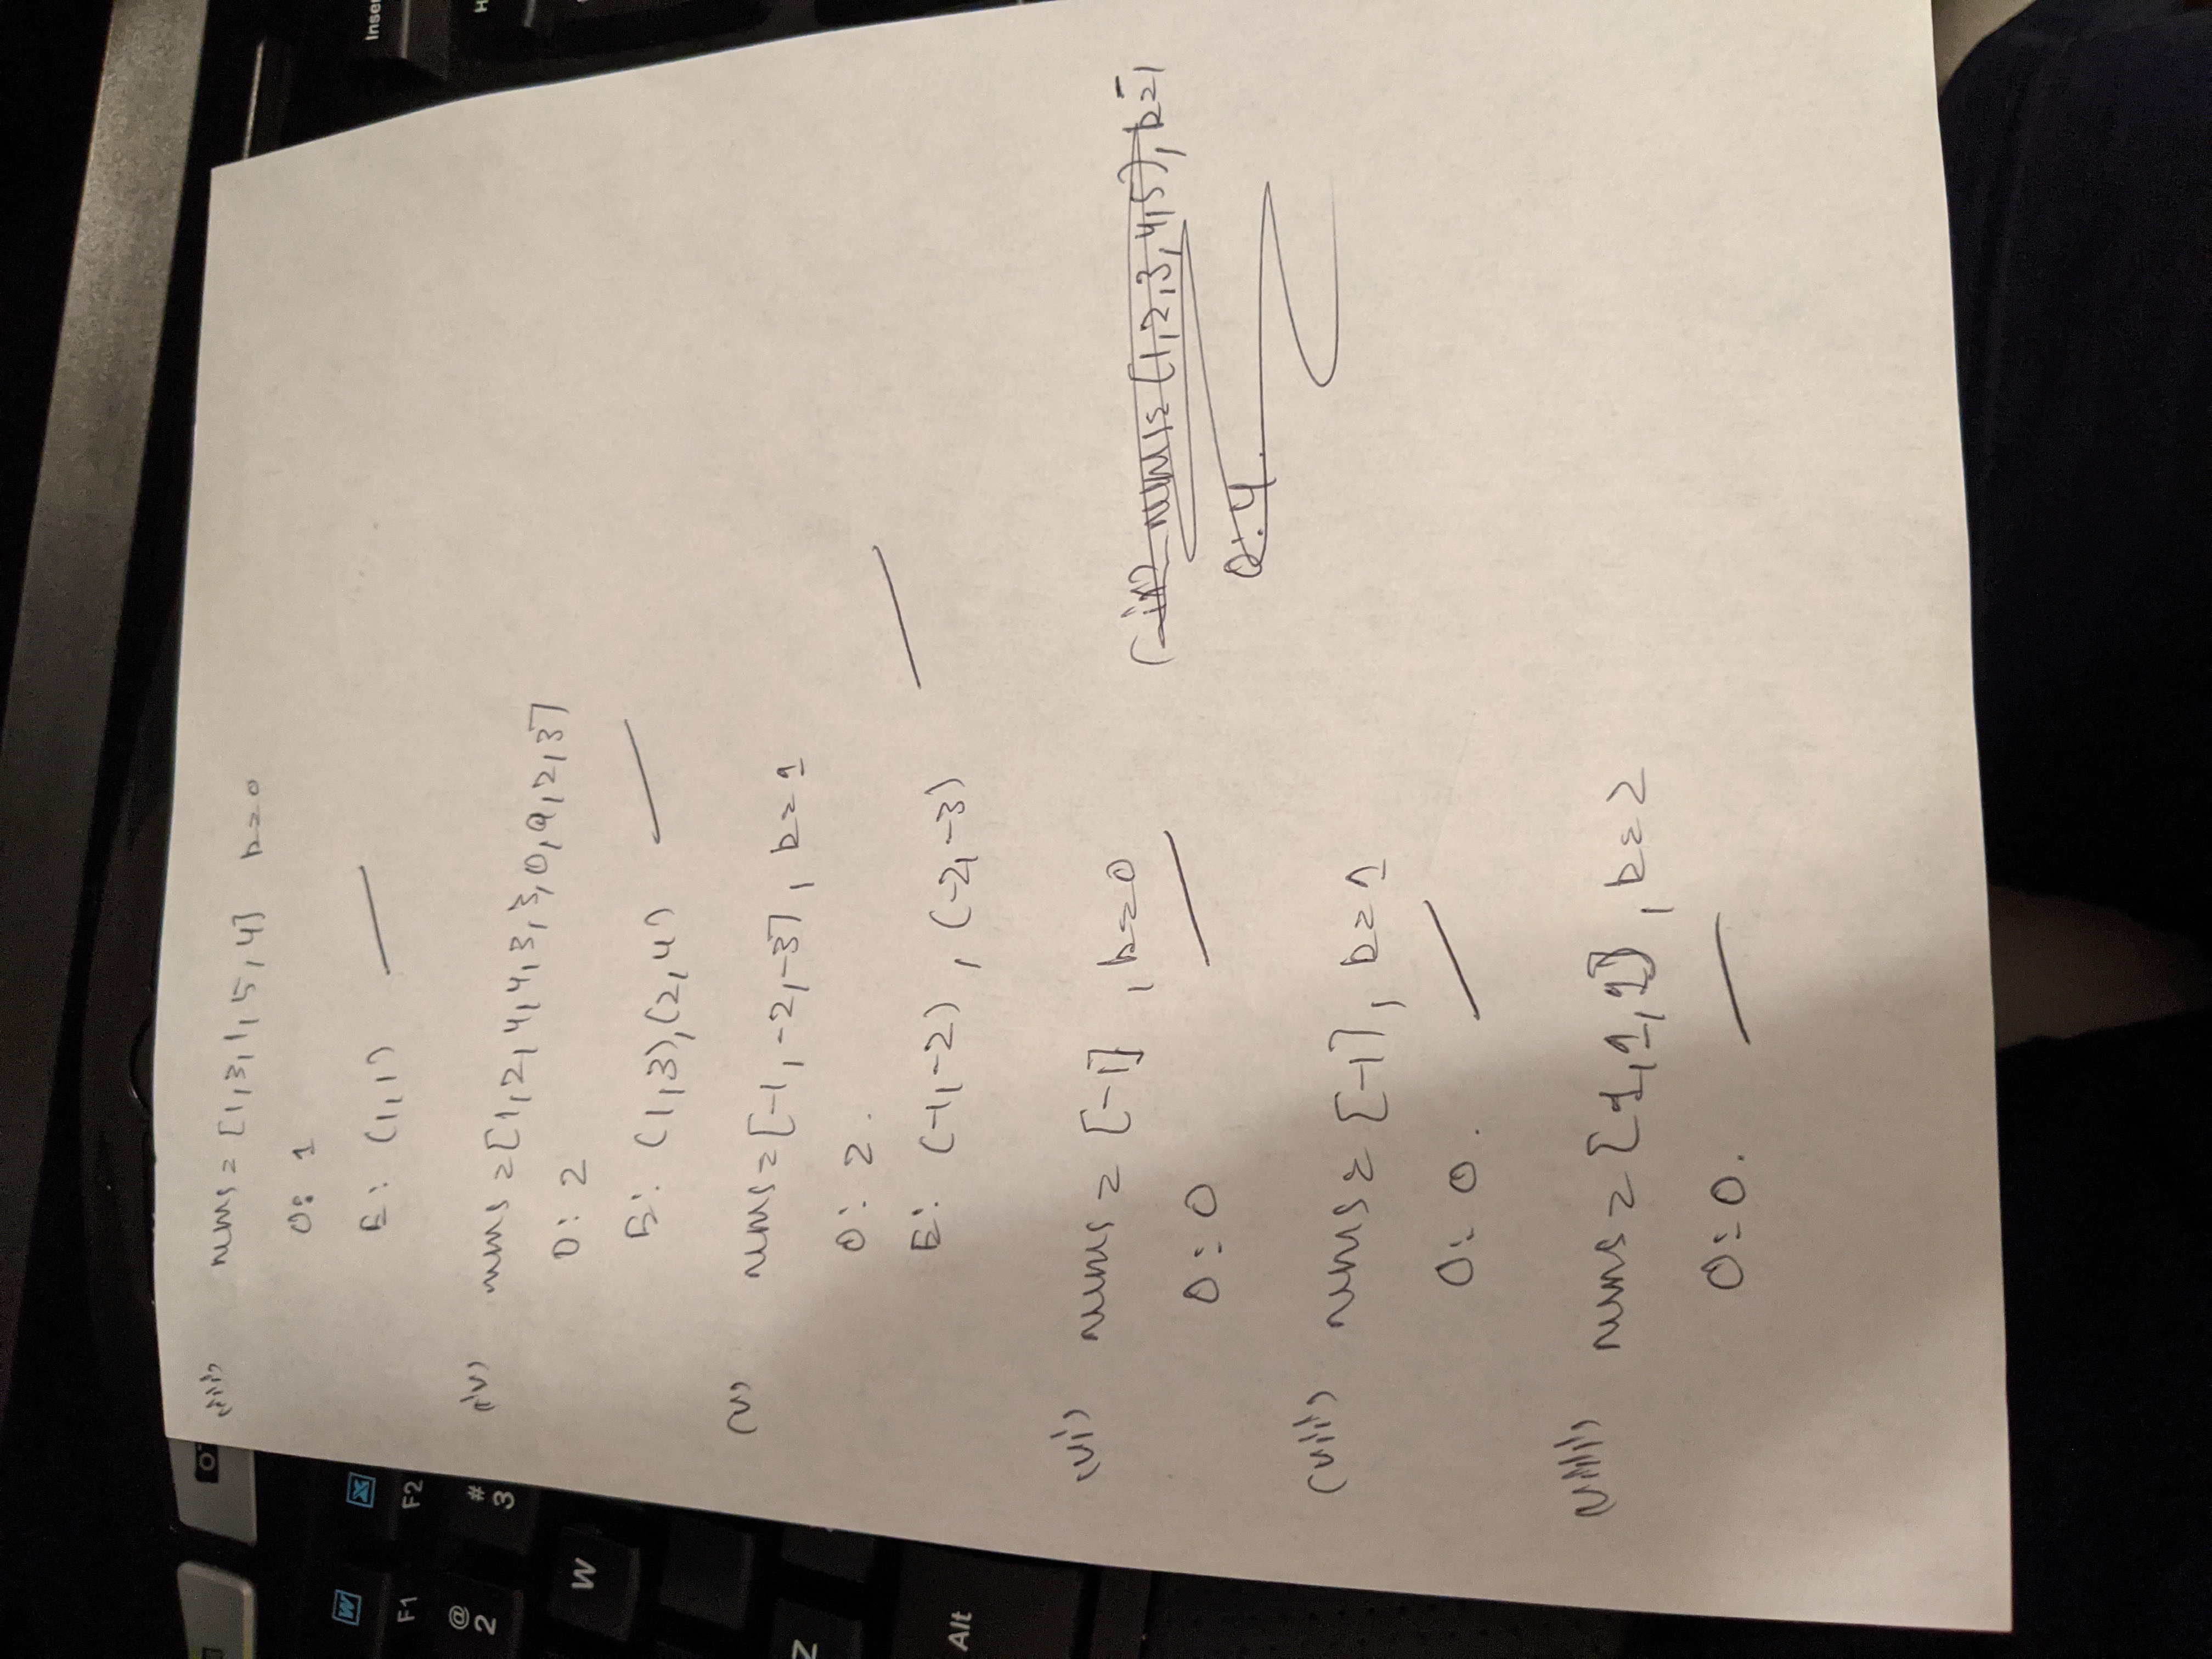 (iii) nums = [1,3,1,5,4] k=0
O: 1
E: (1,1)
(iv) nums = [1,2,4,4,3,3,0,9,2,3]
O: 2
E: (1,3),(2,4)
(v) nums = [-1,-2,-3], k=1
O: 2.
E: (-1,-2), (-2,-3)
(vi) nums = [-1], k=0
O: 0
(vii) nums = [-1], k=1
O: 0.
(viii) nums = [1,1,1], k=2
O: 0.
(ix) nums = (1,2,3,4,5), k=1
O: 4.
F1
F2
@
2
#
3
W
Z
Alt
Inse
H